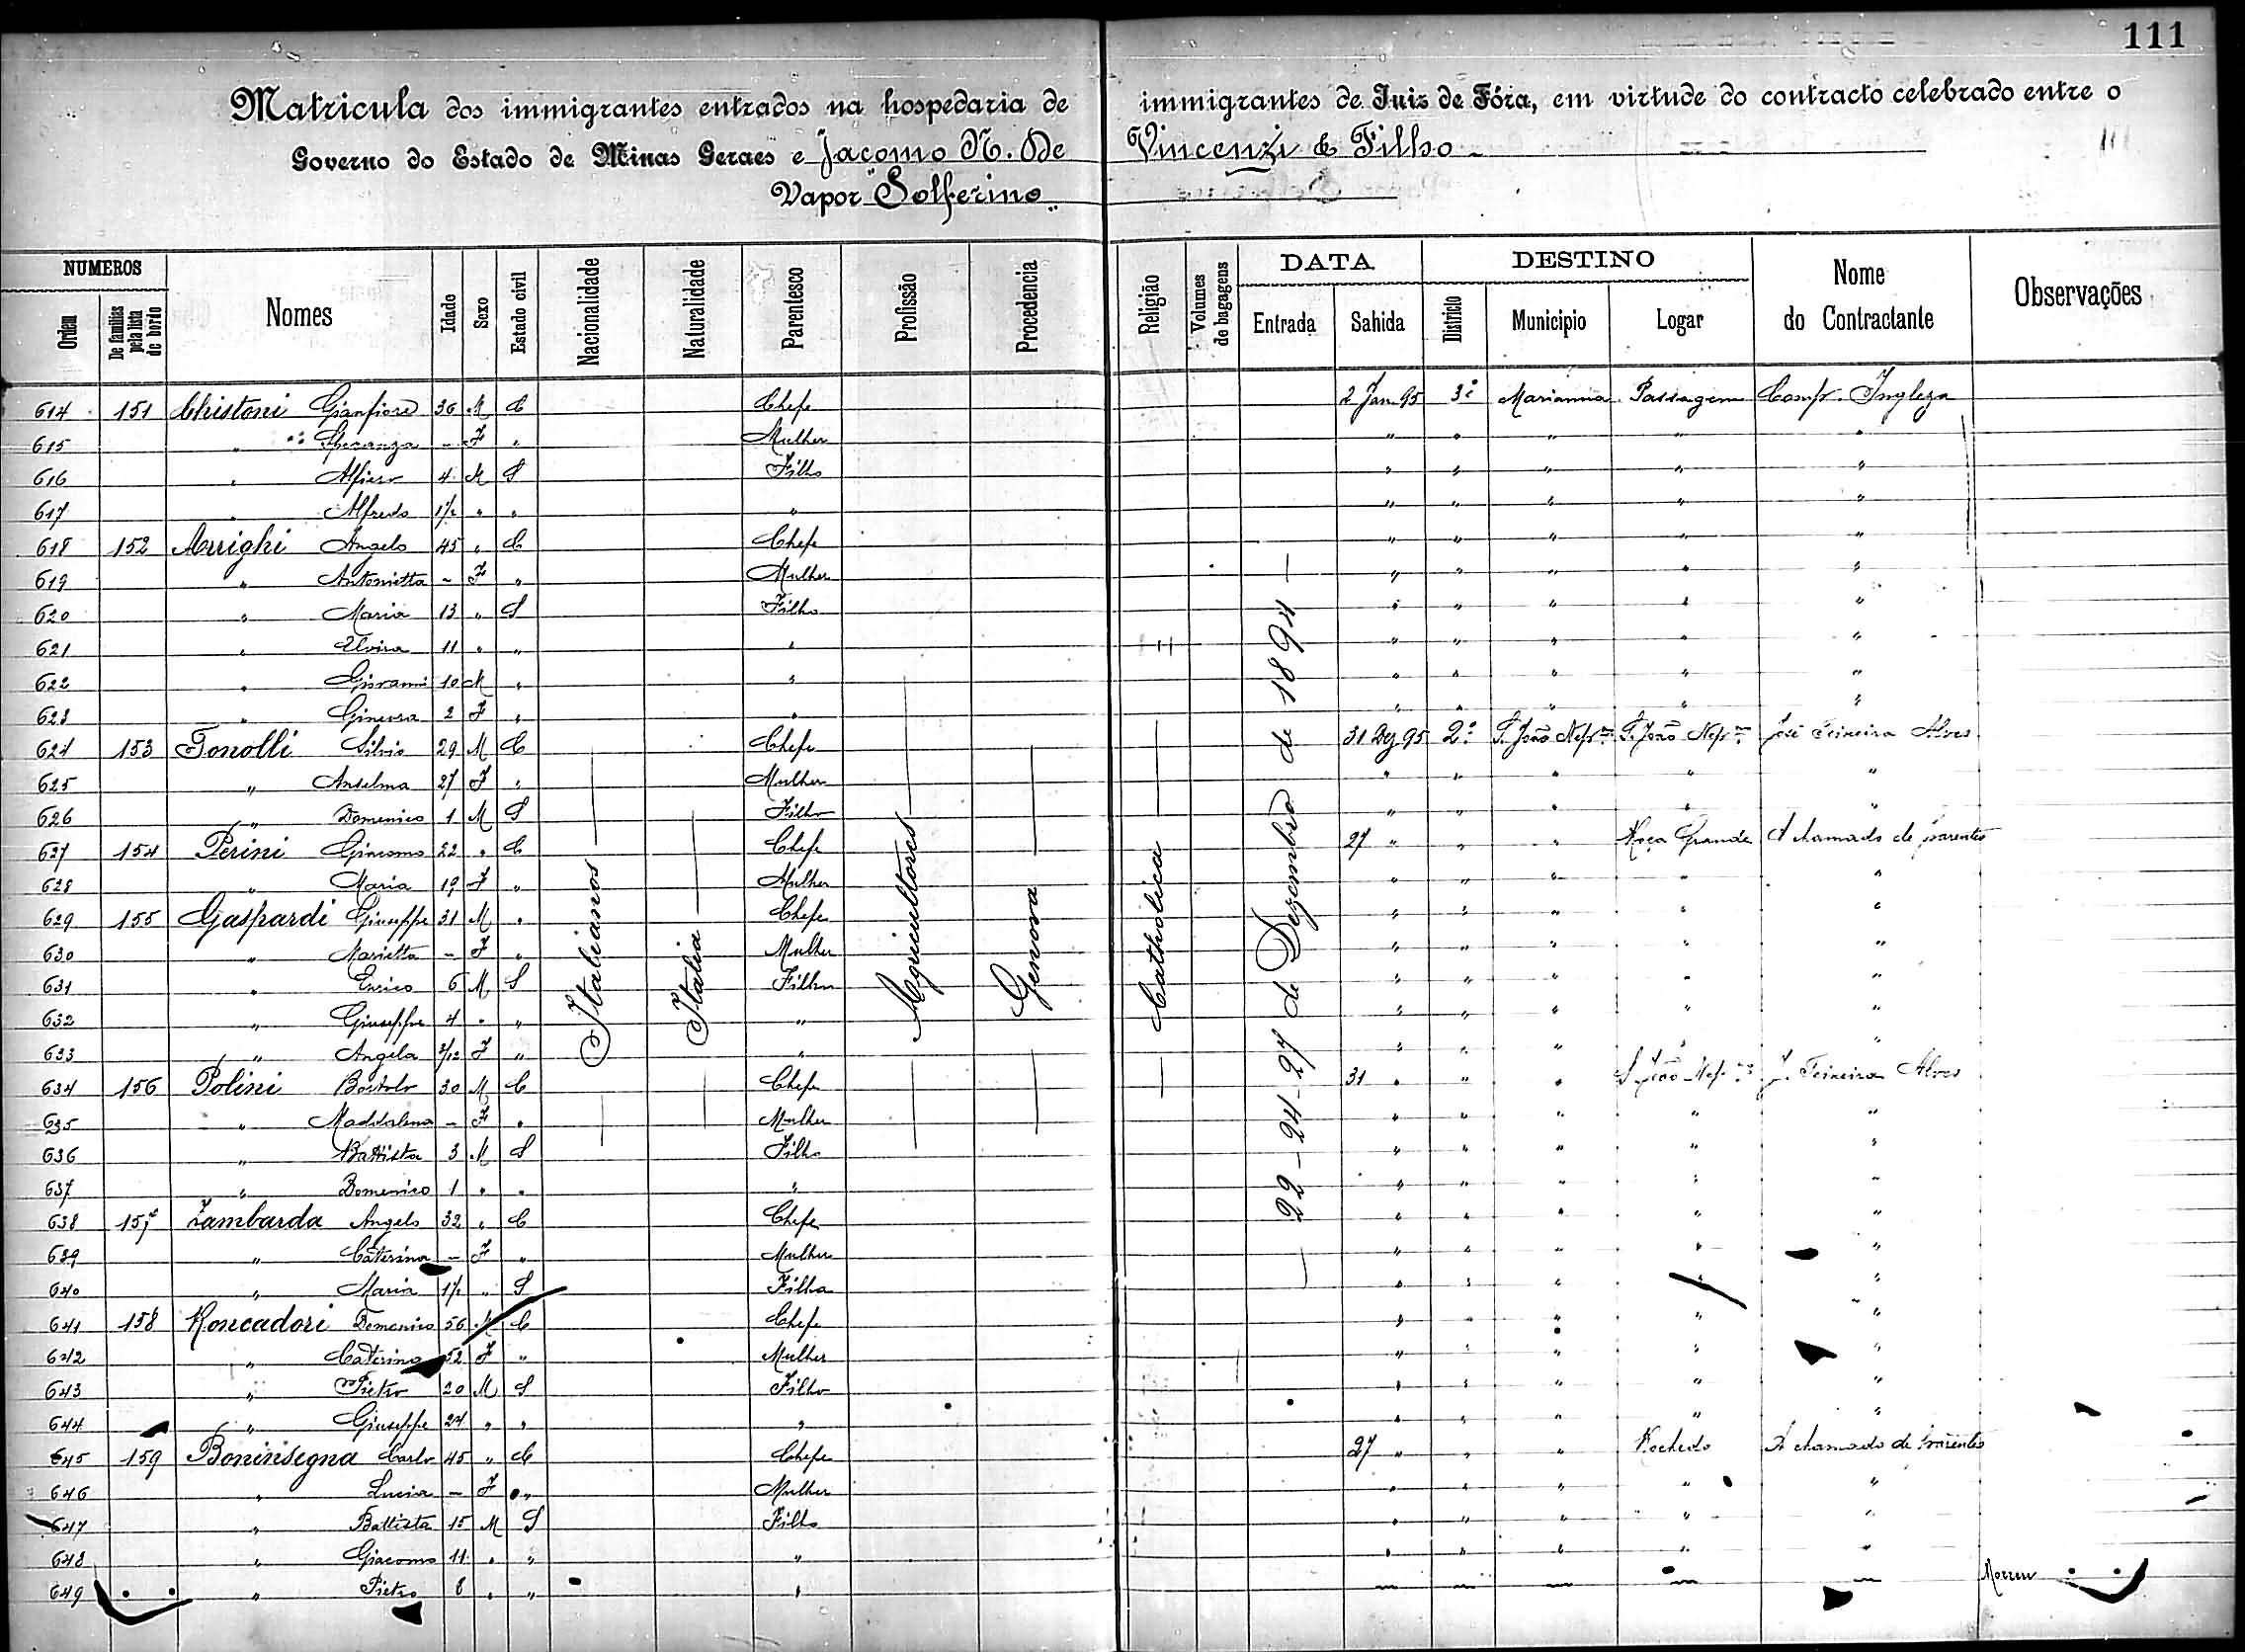 111
Matricula dos immigrantes entrados na hospedaria de immigrantes de Juiz de Fóra, em virtude do contracto celebrado entre o
Governo do Estado de Minas Geraes e Jacomo N. De Vincenzi & Filho
Vapor "Solferino"
NUMEROS DATA DESTINO
Ordem De familias pela lista de bordo Nomes Idade Sexo Estado civil Nacionalidade Naturalidade Parentesco Profissão Procedencia Religião Volumes de bagagens Entrada Sahida Districto Municipio Logar Nome do Contractante Observações
Italianos Italia Agricultores Genova Catholica 22-24-27 de Dezembro de 1894
614 151 Christoni Gianfiore 36 M C Chefe 2 Jan 95 3º Marianna Passagem Comp. Ingleza
615 " Speranza - F " Mulher " " " " "
616 " Alfiero 4 M S Filho " " " " "
617 " Alfredo 1½ " " " " " " " "
618 152 Arrighi Angelo 45 " C Chefe " " " " "
619 " Antonietta - F " Mulher " " " " "
620 " Maria 13 " S Filho " " " " "
621 " Elvira 11 " " " " " " " "
622 " Giovanni 10 M " " " " " " "
623 " Ginevra 2 F " " " " " " "
624 153 Tonolli Silvio 29 M C Chefe 31 Dez 95 2º S. João Nep.no S. João Nep.no José Teixeira Alves
625 " Anselma 27 F " Mulher " " " " "
626 " Domenico 1 M S Filho " " " " "
627 154 Perini Giacomo 22 " C Chefe 27 " " " Roça Grande A chamado de parentes
628 " Maria 19 F " Mulher " " " " "
629 155 Gaspardi Giuseppe 31 M " Chefe " " " " "
630 " Marietta - F " Mulher " " " " "
631 " Enrico 6 M S Filho " " " " "
632 " Giuseppe 4 " " " " " " " "
633 " Angela /12 F " " " " " " "
634 156 Polini Bortolo 30 M C Chefe 31 " " " S João Nep.no J. Teixeira Alves
635 " Maddalena - F " Mulher " " " " "
636 " Battista 3 M S Filho " " " " "
637 " Domenico 1 " " " " " " " "
638 157 Zambarda Angelo 32 " C Chefe " " " " "
639 " Caterina - F " Mulher " " " " "
640 " Maria 1½ " S Filha " " " " "
641 158 Roncadori Domenico 56 M C Chefe " " " " "
642 " Caterina 52 F " Mulher " " " " "
643 " Pietro 20 M S Filho " " " " "
644 " Giuseppe 24 " " " " " " " "
645 159 Boninsegna Carlo 45 " C Chefe 27 " " " Rochedo A chamado de parentes
646 " Lucia - F " Mulher " " " " "
647 " Battista 15 M S Filho " " " " "
648 " Giacomo 11 " " " " " " " "
649 " Pietro 8 " " " - - - - - Morreu